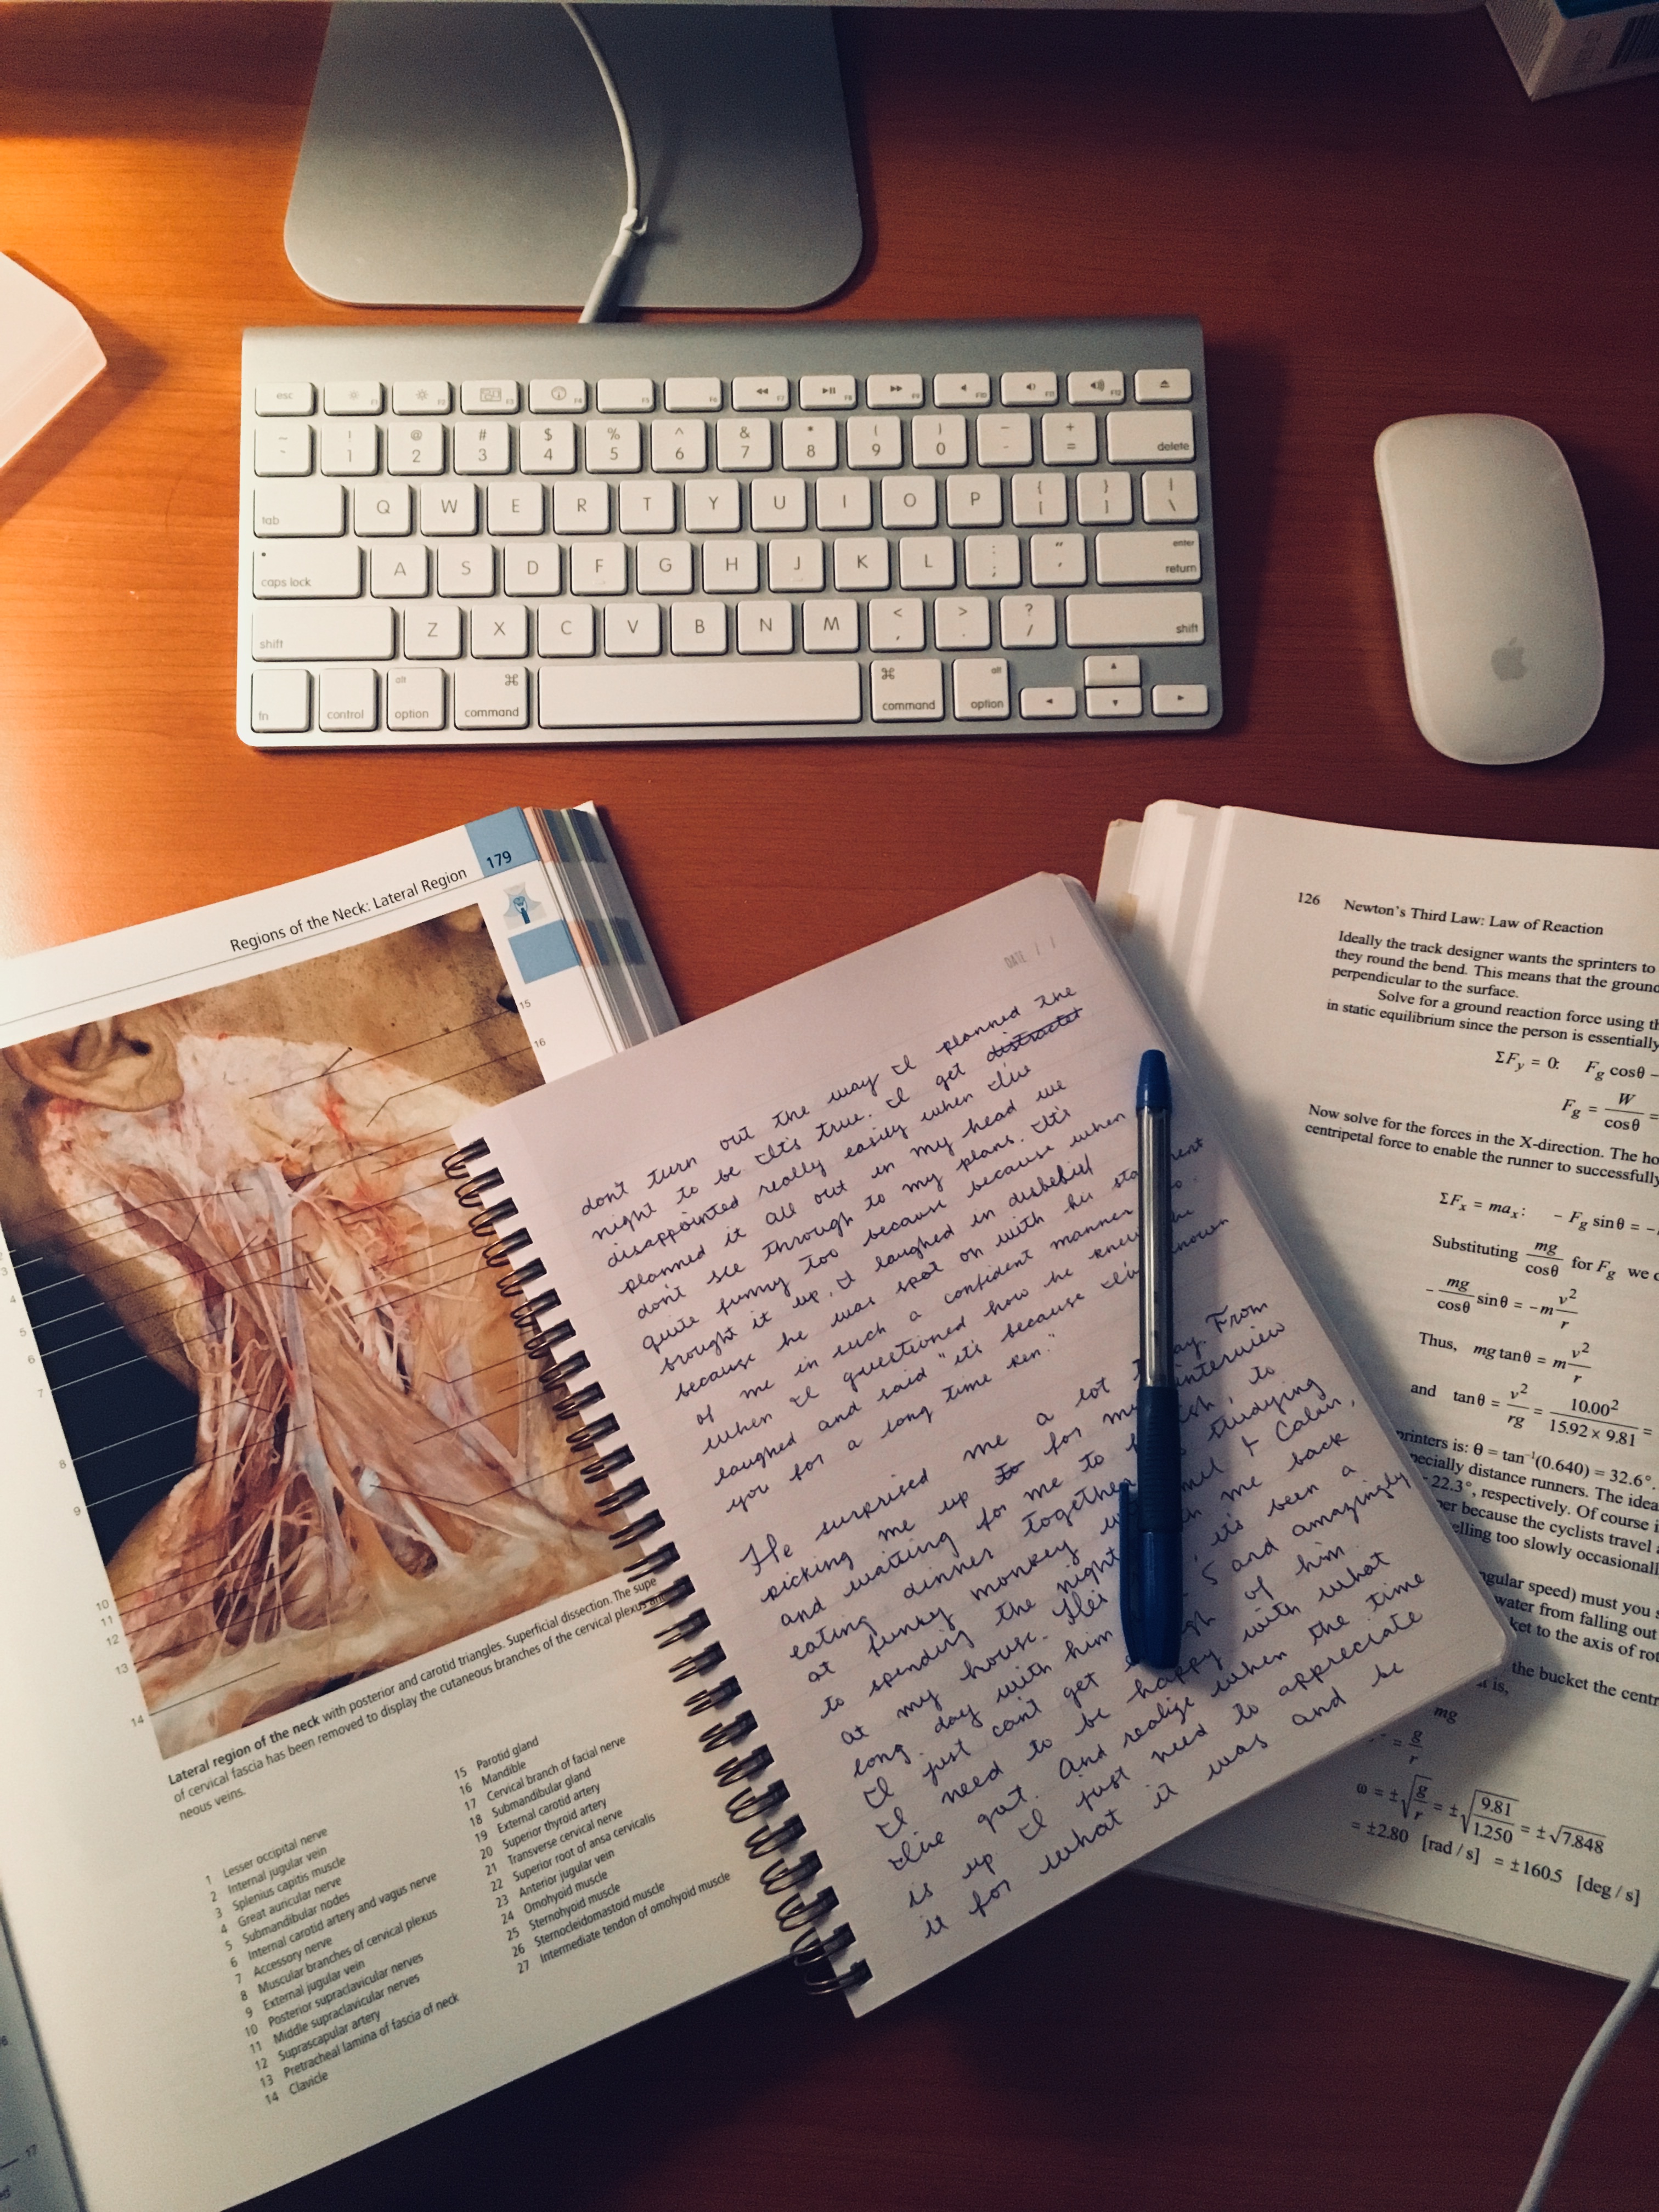 esc F1 F2 F3 F4 F5 F6 F7 F8 F9 F10 F11 F12
~ ! @ # $ % ^ & * ( ) _ +
` 1 2 3 4 5 6 7 8 9 0 - = delete
tab Q W E R T Y U I O P { [ } ] | \
caps lock A S D F G H J K L : ; " ' enter return
shift Z X C V B N M < , > . ? / shift
fn control alt option ⌘ command ⌘ command alt option
179
Regions of the Neck: Lateral Region
15
16
3
4
5
6
7
8
9
10
11
12
13
14
Lateral region of the neck with posterior and carotid triangles. Superficial dissection. The supe
of cervical fascia has been removed to display the cutaneous branches of the cervical plexus
neous veins.
1 Lesser occipital nerve
2 Internal jugular vein
3 Splenius capitis muscle
4 Great auricular nerve
5 Submandibular nodes
6 Internal carotid artery and vagus nerve
7 Accessory nerve
8 Muscular branches of cervical plexus
9 External jugular vein
10 Posterior supraclavicular nerves
11 Middle supraclavicular nerves
12 Suprascapular artery
13 Pretracheal lamina of fascia of neck
14 Clavicle
15 Parotid gland
16 Mandible
17 Cervical branch of facial nerve
18 Submandibular gland
19 External carotid artery
20 Superior thyroid artery
21 Transverse cervical nerve
22 Superior root of ansa cervicalis
23 Anterior jugular vein
24 Omohyoid muscle
25 Sternohyoid muscle
26 Sternocleidomastoid muscle
27 Intermediate tendon of omohyoid muscle
17
DATE / /
don't turn out the way I planned the
night to be. It's true. I get distracted
disappointed really easily when I've
planned it all out in my head we
don't see through to my plans. It's
quite funny too because because when
brought it up, I laughed in disbelief
because he was spot on with his
of me in such a confident manner
when I questioned how he knew he
laughed and said "it's because I've known
you for a long time Ren."
He surprised me a lot From
picking me up to for my interview
and waiting for me to to
eating dinner together studying
at funky monkey & Calvin,
to spending the night me back
at my house. it's been a
long day with him 5 and amazingly
I just can't get of him.
I need to be happy with what
I've got. And realize when the time
is up I just need to appreciate
it for what it was and be
126 Newton's Third Law: Law of Reaction
Ideally the track designer wants the sprinters to
they round the bend. This means that the ground
perpendicular to the surface.
Solve for a ground reaction force using th
in static equilibrium since the person is essentially
ΣFy = 0: Fg cosθ –
Fg = W/cosθ =
Now solve for the forces in the X-direction. The ho
centripetal force to enable the runner to successfully
ΣFx = max: - Fg sinθ = -
Substituting mg/cosθ for Fg we
- mg/cosθ sinθ = -m v²/r
Thus, mg tanθ = m v²/r
and tanθ = v²/rg = 10.00²/15.92 × 9.81 =
printers is: θ = tan⁻¹(0.640) = 32.6°.
pecially distance runners. The idea
22.3°, respectively. Of course i
per because the cyclists travel
elling too slowly occasionall
ngular speed) must you
water from falling out
ket to the axis of rot
the bucket the centr
is,
mg
= g/r
ω = ±√g/r = ±√9.81/1.250 = ±√7.848
= ±2.80 [rad / s] = ±160.5 [deg / s]